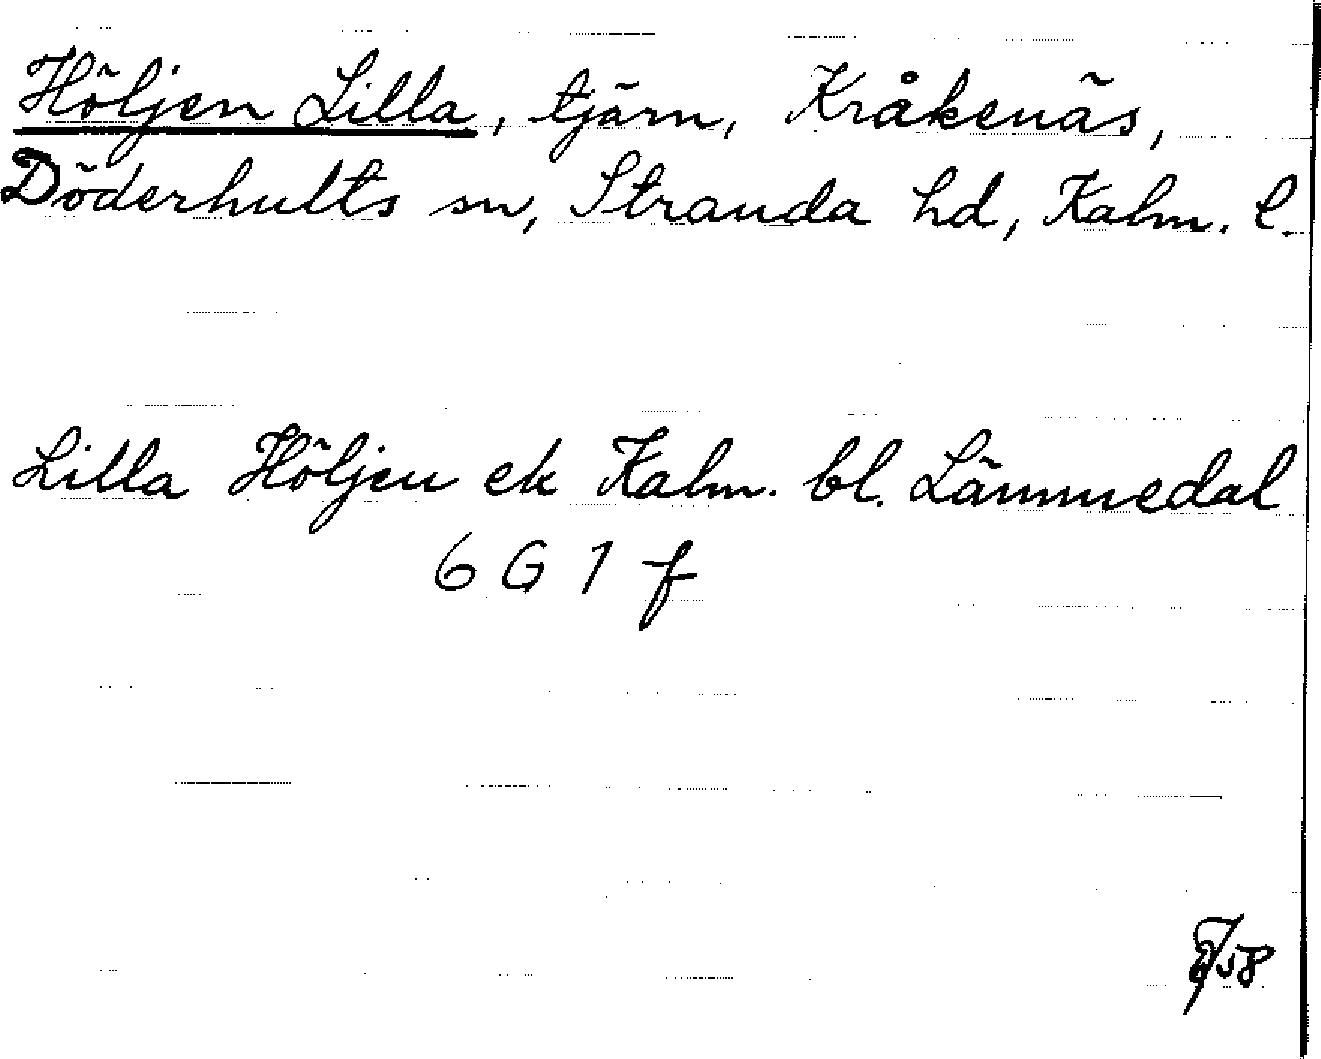 Höljen Lilla, tjärn, Kråkenäs,
Döderhults sn, Stranda hd, Kalm. l.
Lilla Höljen ek Kalm. bl. Lämmedal
6 G 1 f
58